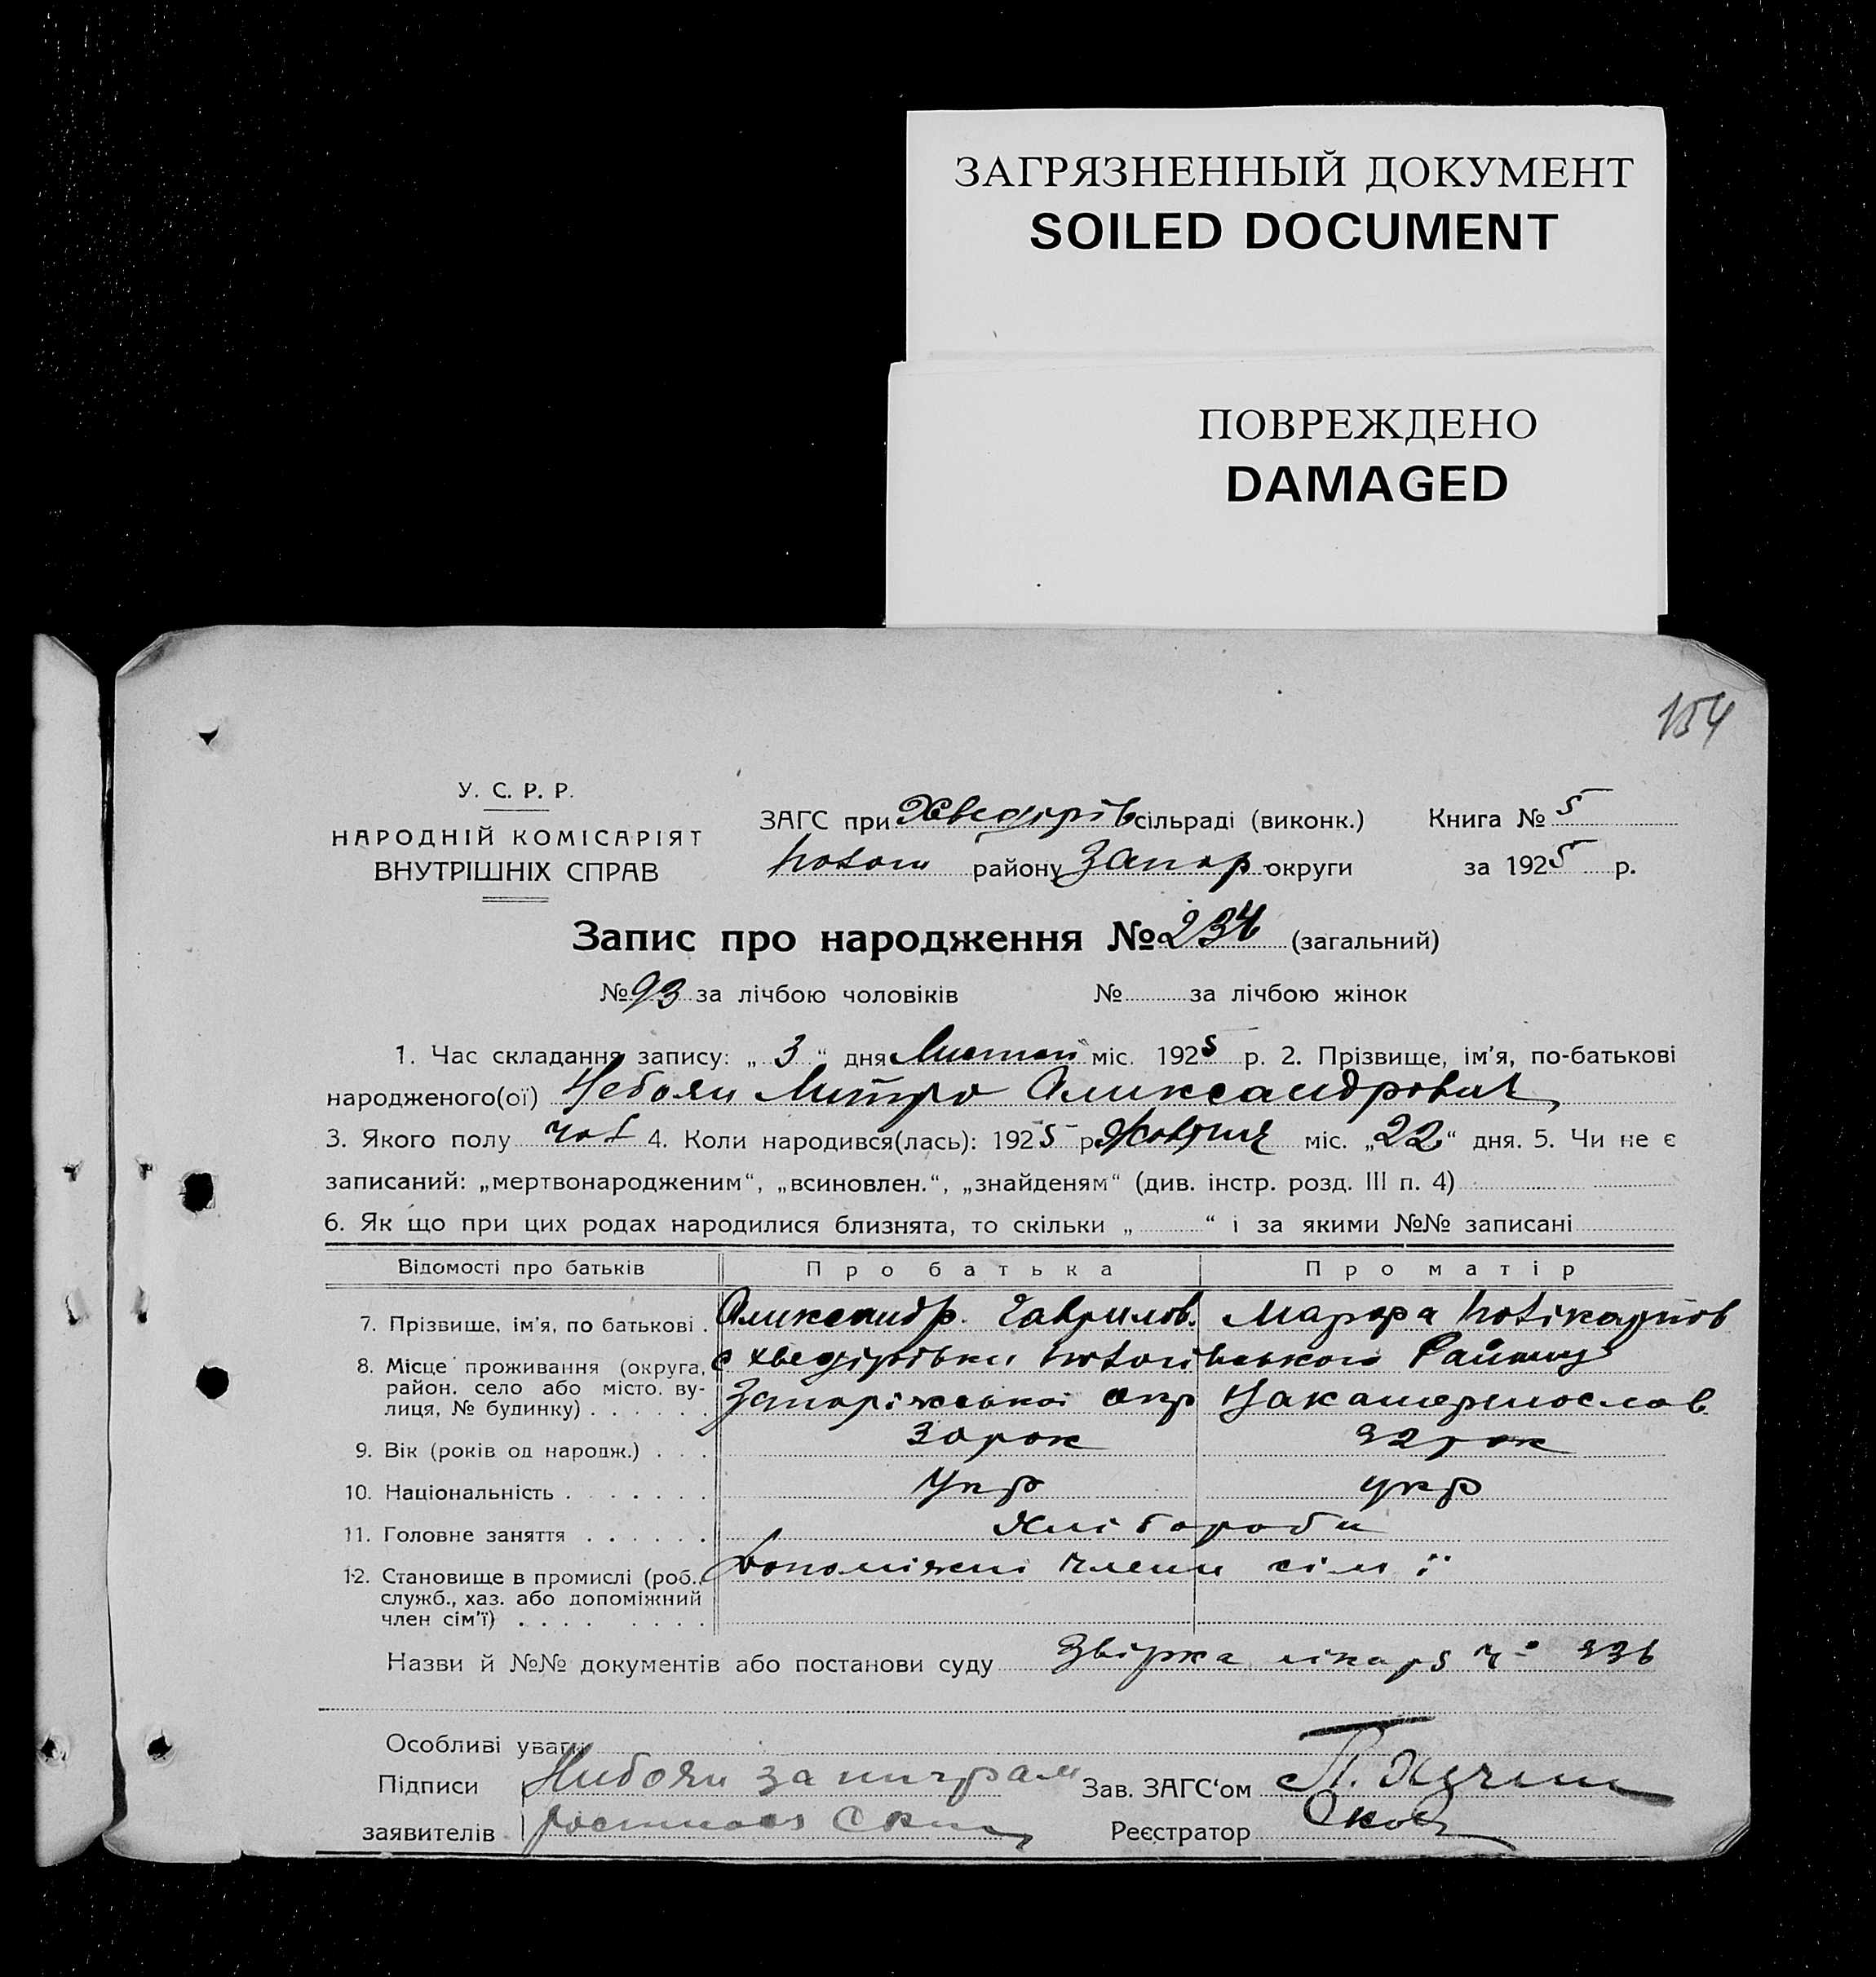 ЗАГРЯЗНЕННЫЙ ДОКУМЕНТ
SOILED DOCUMENT
ПОВРЕЖДЕНО
DAMAGED
154
У. С. Р. Р.
НАРОДНІЙ КОМІСАРІЯТ
ВНУТРІШНІХ СПРАВ
ЗАГС при Хведорів сільраді (виконк.) Книга № 5
району Запор округи за 1925 р.
Запис про народження № 234 (загальний)
№ 93 за лічбою чоловіків № за лічбою жінок
1. Час складання запису: „ 3 “ дня Листоп міс. 1925 р. 2. Прізвище, ім'я, по-батькові
народженого(ої) Небоян Митро Олександрович
3. Якого полу чол 4. Коли народився(лась): 1925 р. Жовтня міс. „22“ дня. 5. Чи не є
записаний: „мертвонародженим“, „всиновлен.“, „знайденям“ (див. інстр. розд. III п. 4)
6. Як що при цих родах народилися близнята, то скільки „ “ і за якими №№ записані
Відомості про батьків Про батька Про матір
7. Прізвище, ім'я, по батькові . Олександр. Гаврилов. Марфа
8. Місце проживання (округа, с Хведірівки Району
район. село або місто. ву-
лиця, № будинку) . . . . . . Запоріжської окр
9. Вік (років од народж.) . . . 30 рок 32 рок
10. Національність . . . . . . . Укр укр
11. Головне заняття . . . . . . Хлібороби
12. Становище в промислі (роб., Допоміжні члени сім ї
служб., хаз. або допоміжний
член сім'ї) . . . . . . . .
Назви й №№ документів або постанови суду лікаря № 336
Особливі уваги
Підписи Небоян за Зав. ЗАГС‘ом
заявителів Реєстратор